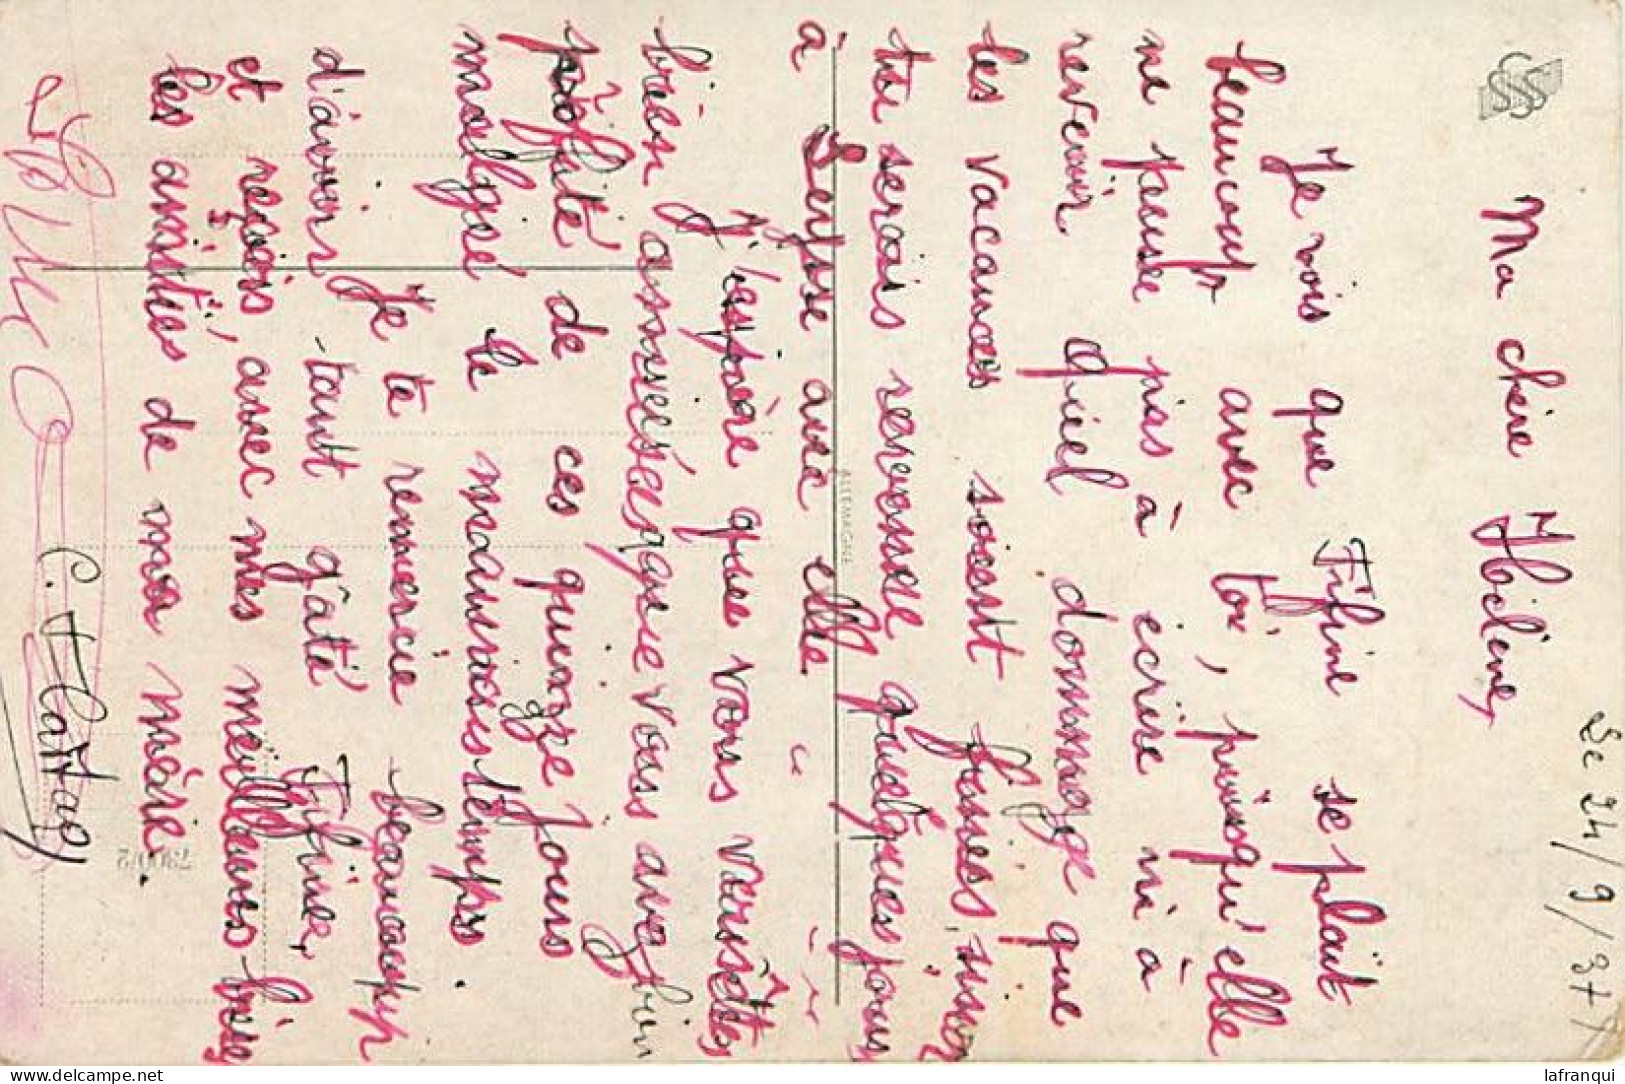 Le 24/9/37
Ma chère Hélène,
Je vois que Fifine se plaît
beaucoup avec toi, puisqu'elle
ne pense pas à écrire ni à
revenir. Quel dommage que
les vacances soient finies, sinon
tu serais revenue quelques jours
à avec elle.
J'espère que vous vous êtes
bien amusées que vous avez bien
profité de ces quinze jours
malgré le mauvais temps.
Je te remercie beaucoup
d'avoir tant gâté Fifine,
et reçois, avec mes meilleurs bises
les amitiés de ma mère.
ALLEMAGNE
delcampe.net
lafranqui